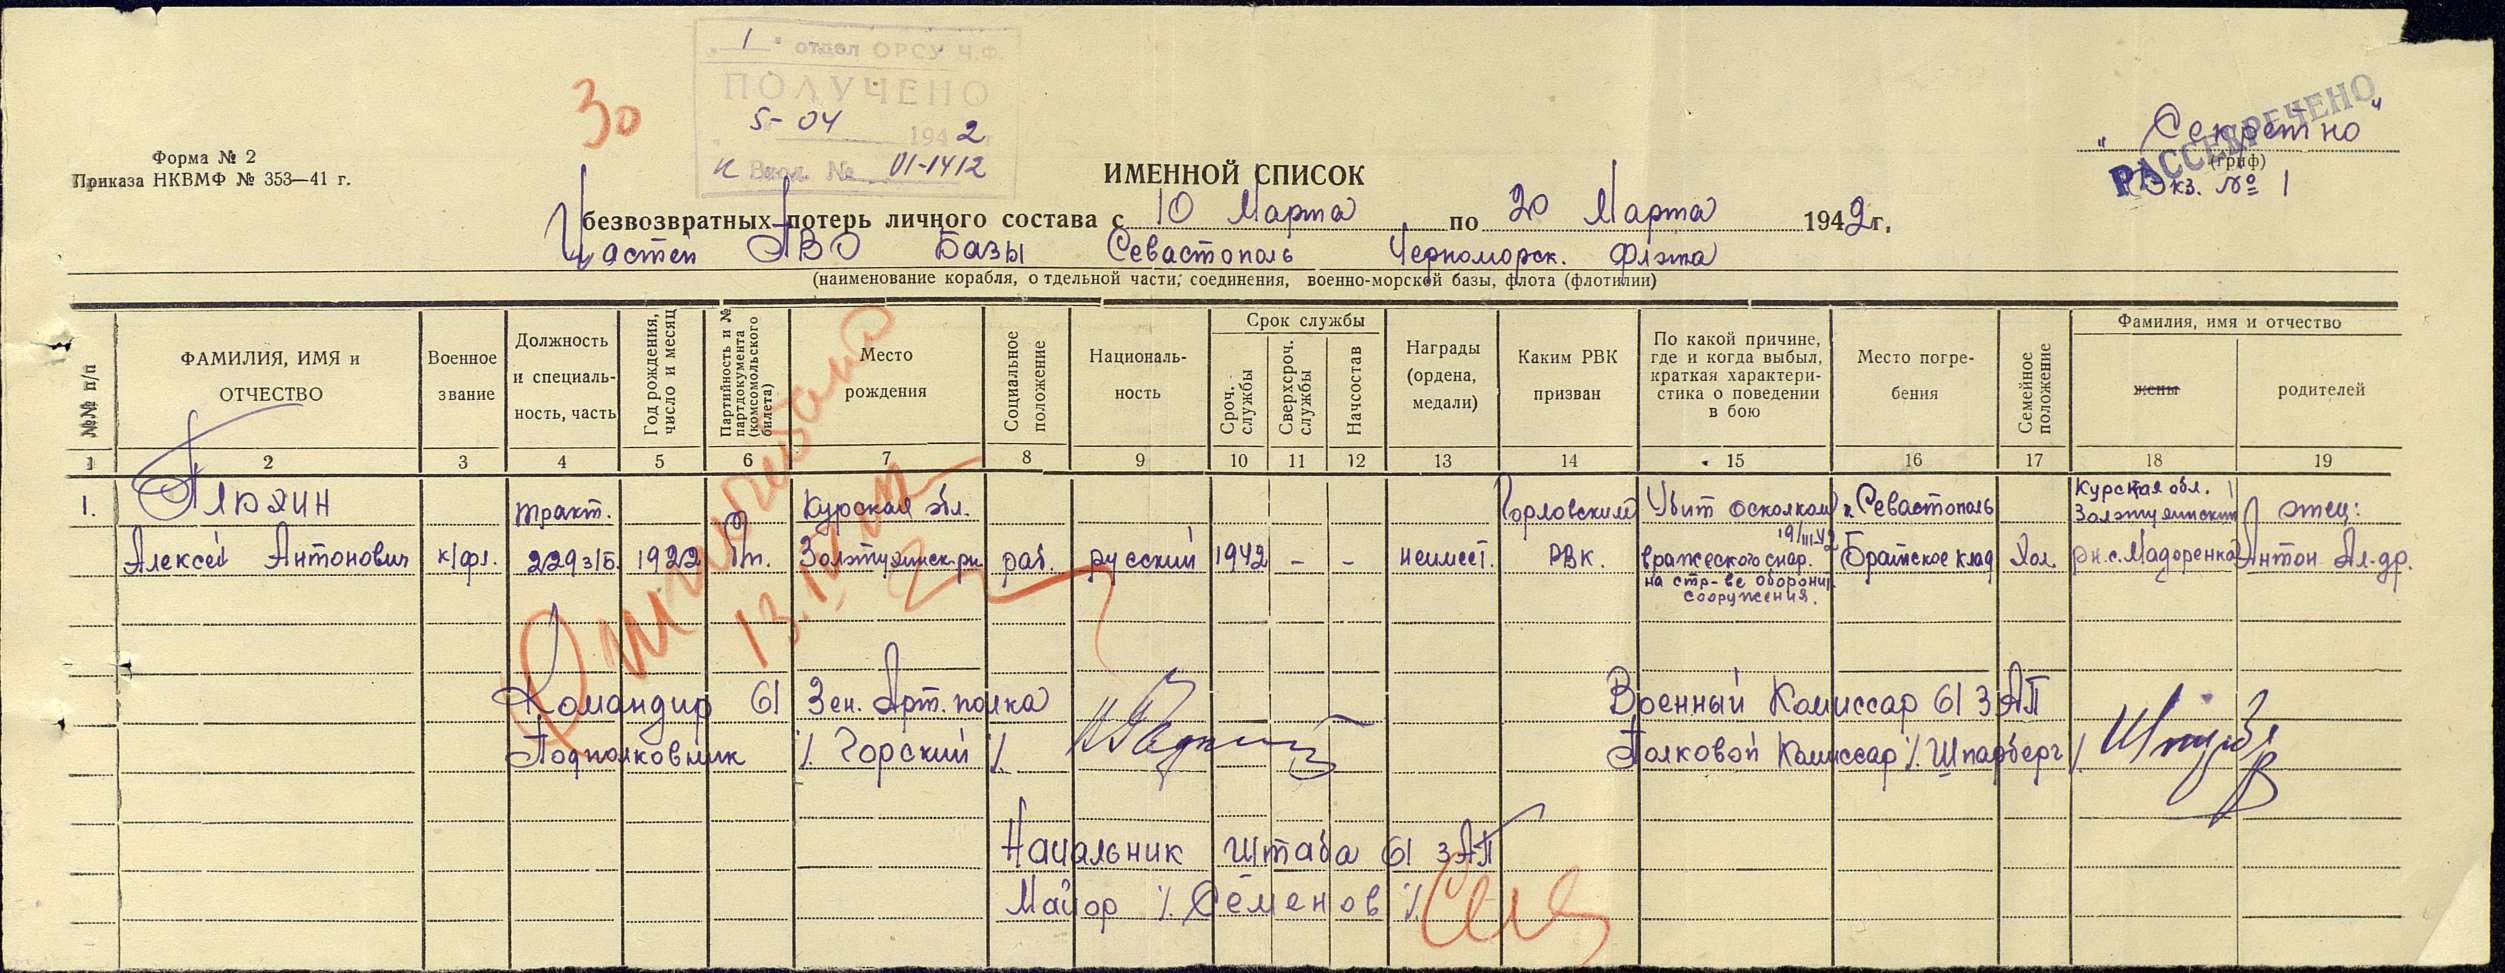 „ 1 " отдел ОРСУ Ч.Ф.
ПОЛУЧЕНО
5-04 1942
к Вход. № 01-1412
30
Форма № 2
Приказа НКВМФ № 353—41 г.
„Секретно"
(гриф)
РАССЕКРЕЧЕНО
Экз. № 1
ИМЕННОЙ СПИСОК
безвозвратных потерь личного состава с 10 Марта по 20 Марта 1942г.
Частей ПВО Базы Севастополь Черноморск. Флота
(наименование корабля, о тдельной части, соединения, военно-морской базы, флота (флотилии)
№№ п/п
ФАМИЛИЯ, ИМЯ и
ОТЧЕСТВО
Военное
звание
Должность
и специаль-
ность, часть
Год рождения,
число и месяц
Партийность и №
партдокумента
(комсомольского
билета)
Место
рождения
Социальное
положение
Националь-
ность
Срок службы
Сроч.
службы
Сверхсроч.
службы
Начсостав
Награды
(ордена,
медали)
Каким РВК
призван
По какой причине,
где и когда выбыл,
краткая характери-
стика о поведении
в бою
Место погре-
бения
Семейное
положение
Фамилия, имя и отчество
жены
родителей
1 2 3 4 5 6 7 8 9 10 11 12 13 14 15 16 17 18 19
1.
Алексей Антонович
к/фл.
тракт.
229 з/б.
1922
Курская обл.
раб.
русский
1942
-
-
неимеет.
Горловским
РВК.
Убит осколком
19/III 42
вражеского снар.
на стр-ве оборонит.
сооружения.
г. Севастополь
Братское клад
Хол.
Курская обл.
отец:
Антон Ал-др.
13.IV
Командир 61 Зен. Арт. полка
Подполковник /. Горский /.
Военный Комиссар 61 ЗАП
Полковой Комиссар /. Шпарберг /.
Начальник Штаба 61 ЗАП
Майор /. Семенов /.